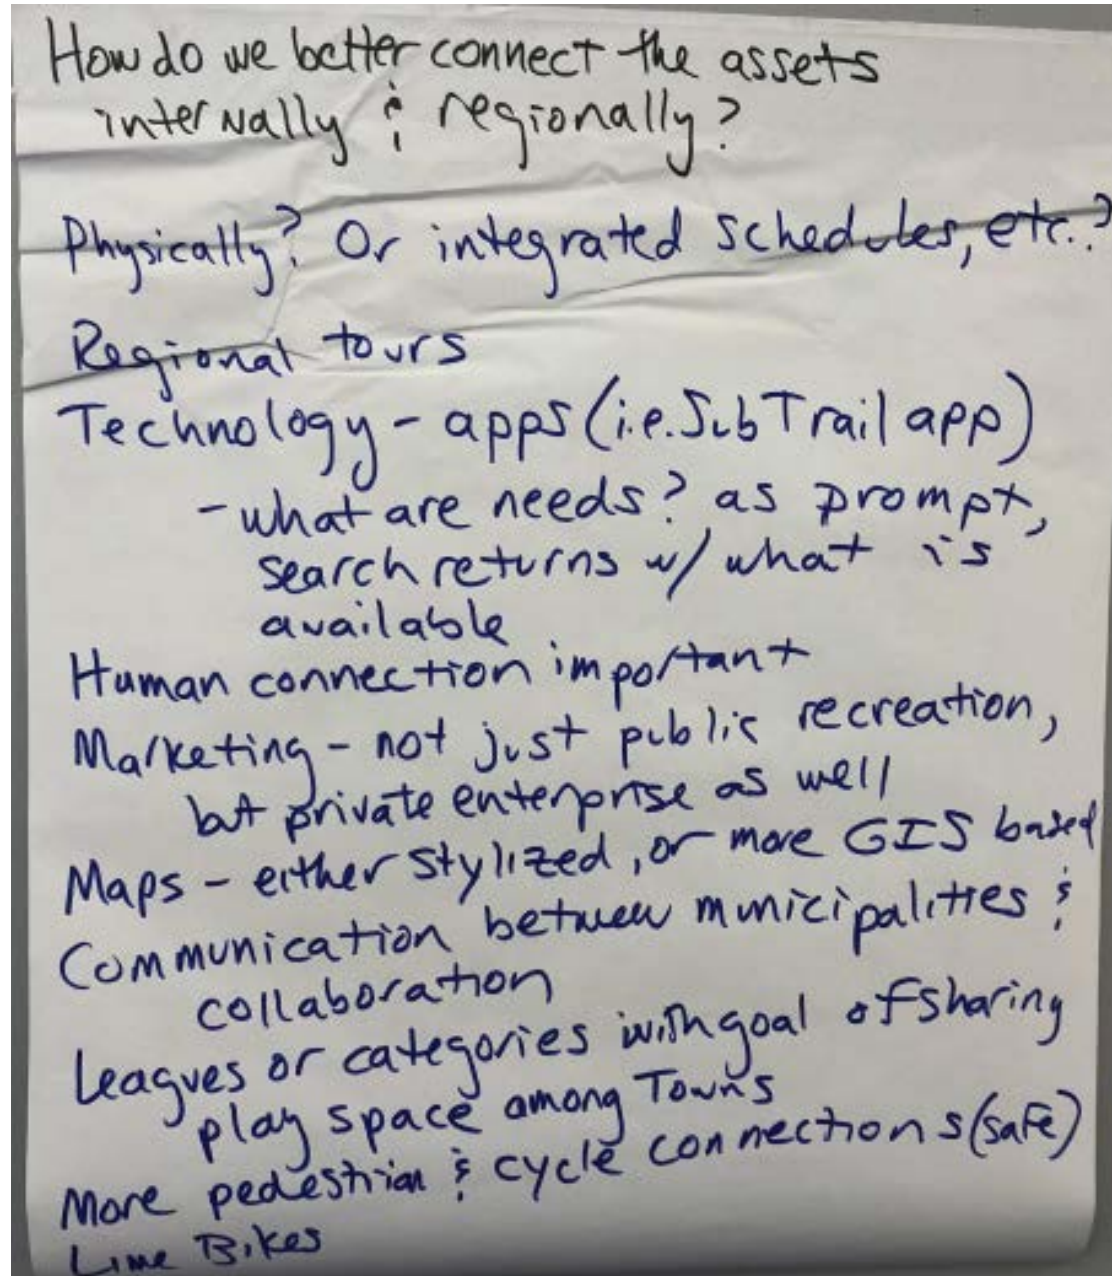 How do we better connect the assets
internally & regionally?
Physically? Or integrated schedules, etc.?
Regional tours
Technology - apps (i.e. SubTrail app)
- what are needs? as prompt,
search returns w/ what is
available
Human connection important
Marketing - not just public recreation,
but private enterprise as well
Maps - either stylized, or more GIS based
Communication between municipalities &
collaboration
Leagues or categories with goal of sharing
play space among Towns
More pedestrian & cycle connections (safe)
Lime Bikes